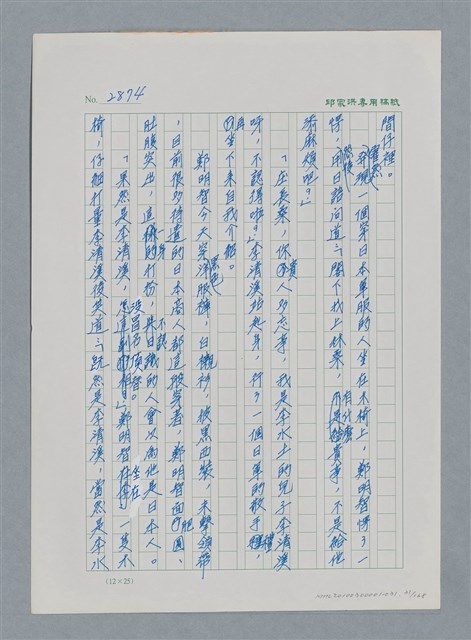 No. 2874
邱家洪專用稿紙
間仔裡。
發現一個穿日本軍服的人坐在木椅上,鄭明智愣了一
愣,用日語問道:「閣下找上林桑,有什麼貴事,不是給他
添麻煩吧?」
「庄長桑,你貴人多忘事,我是李水土的兒子李清漢
呀,不認得啦?」李清漢站起身,行了一個日軍的敬手禮,
再坐下來自我介紹。
鄭明智今天穿黑色洋服褲,白襯衫,披黑西裝,未繫領帶
,目前很多待遣的日本商人都這般穿著,鄭明智面肥圓,
肚腹突出,這一身的打扮,不認識的人會以為他是日本人。
「果然是李清漢,沒冒名頂替。」鄭明智坐在一隻木
椅,仔細打量李清漢後笑道:「既然是李清漢,當然是李水
(12×25)